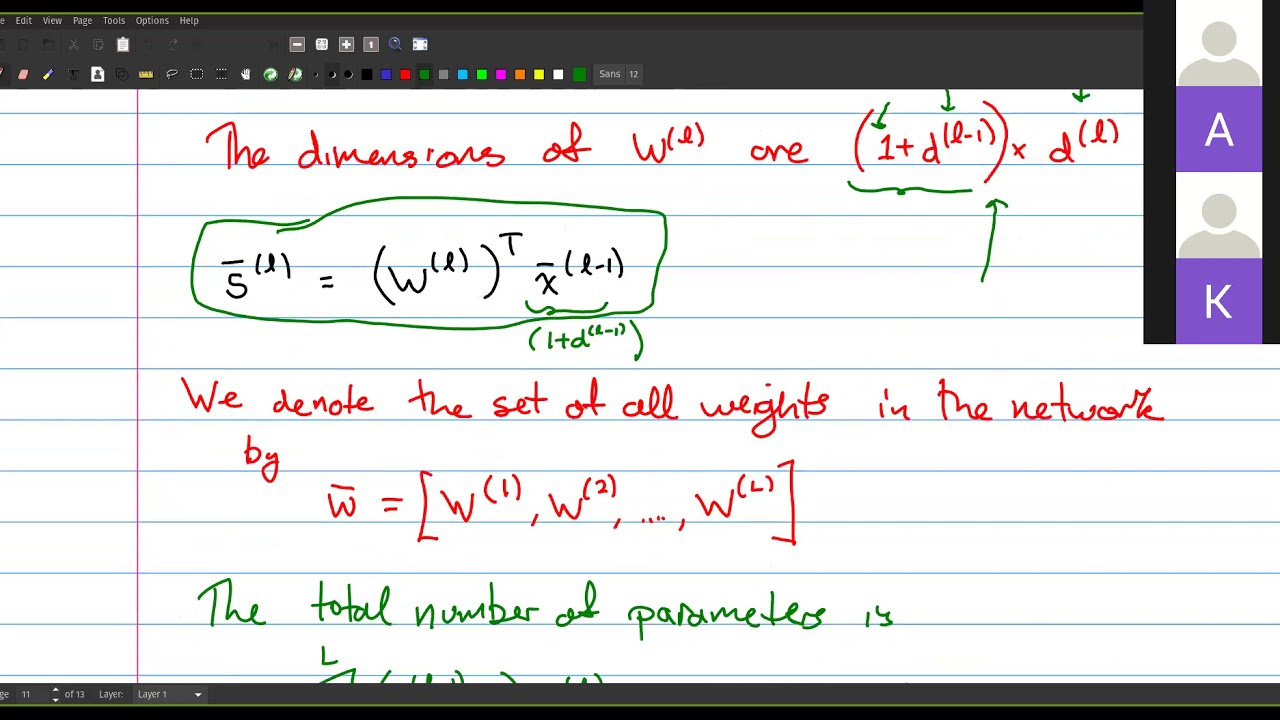 e Edit View Page Tools Options Help
Sans 12
The dimensions of W^(l) are (1+d^(l-1)) × d^(l)
s̄^(l) = (W^(l))^T x̄^(l-1)
(1+d^(l-1))
We denote the set of all weights in the network
by
w̄ = [W^(1), W^(2), ...., W^(L)]
The total number of parameters is
L
A
K
ge 11 of 13 Layer: Layer 1